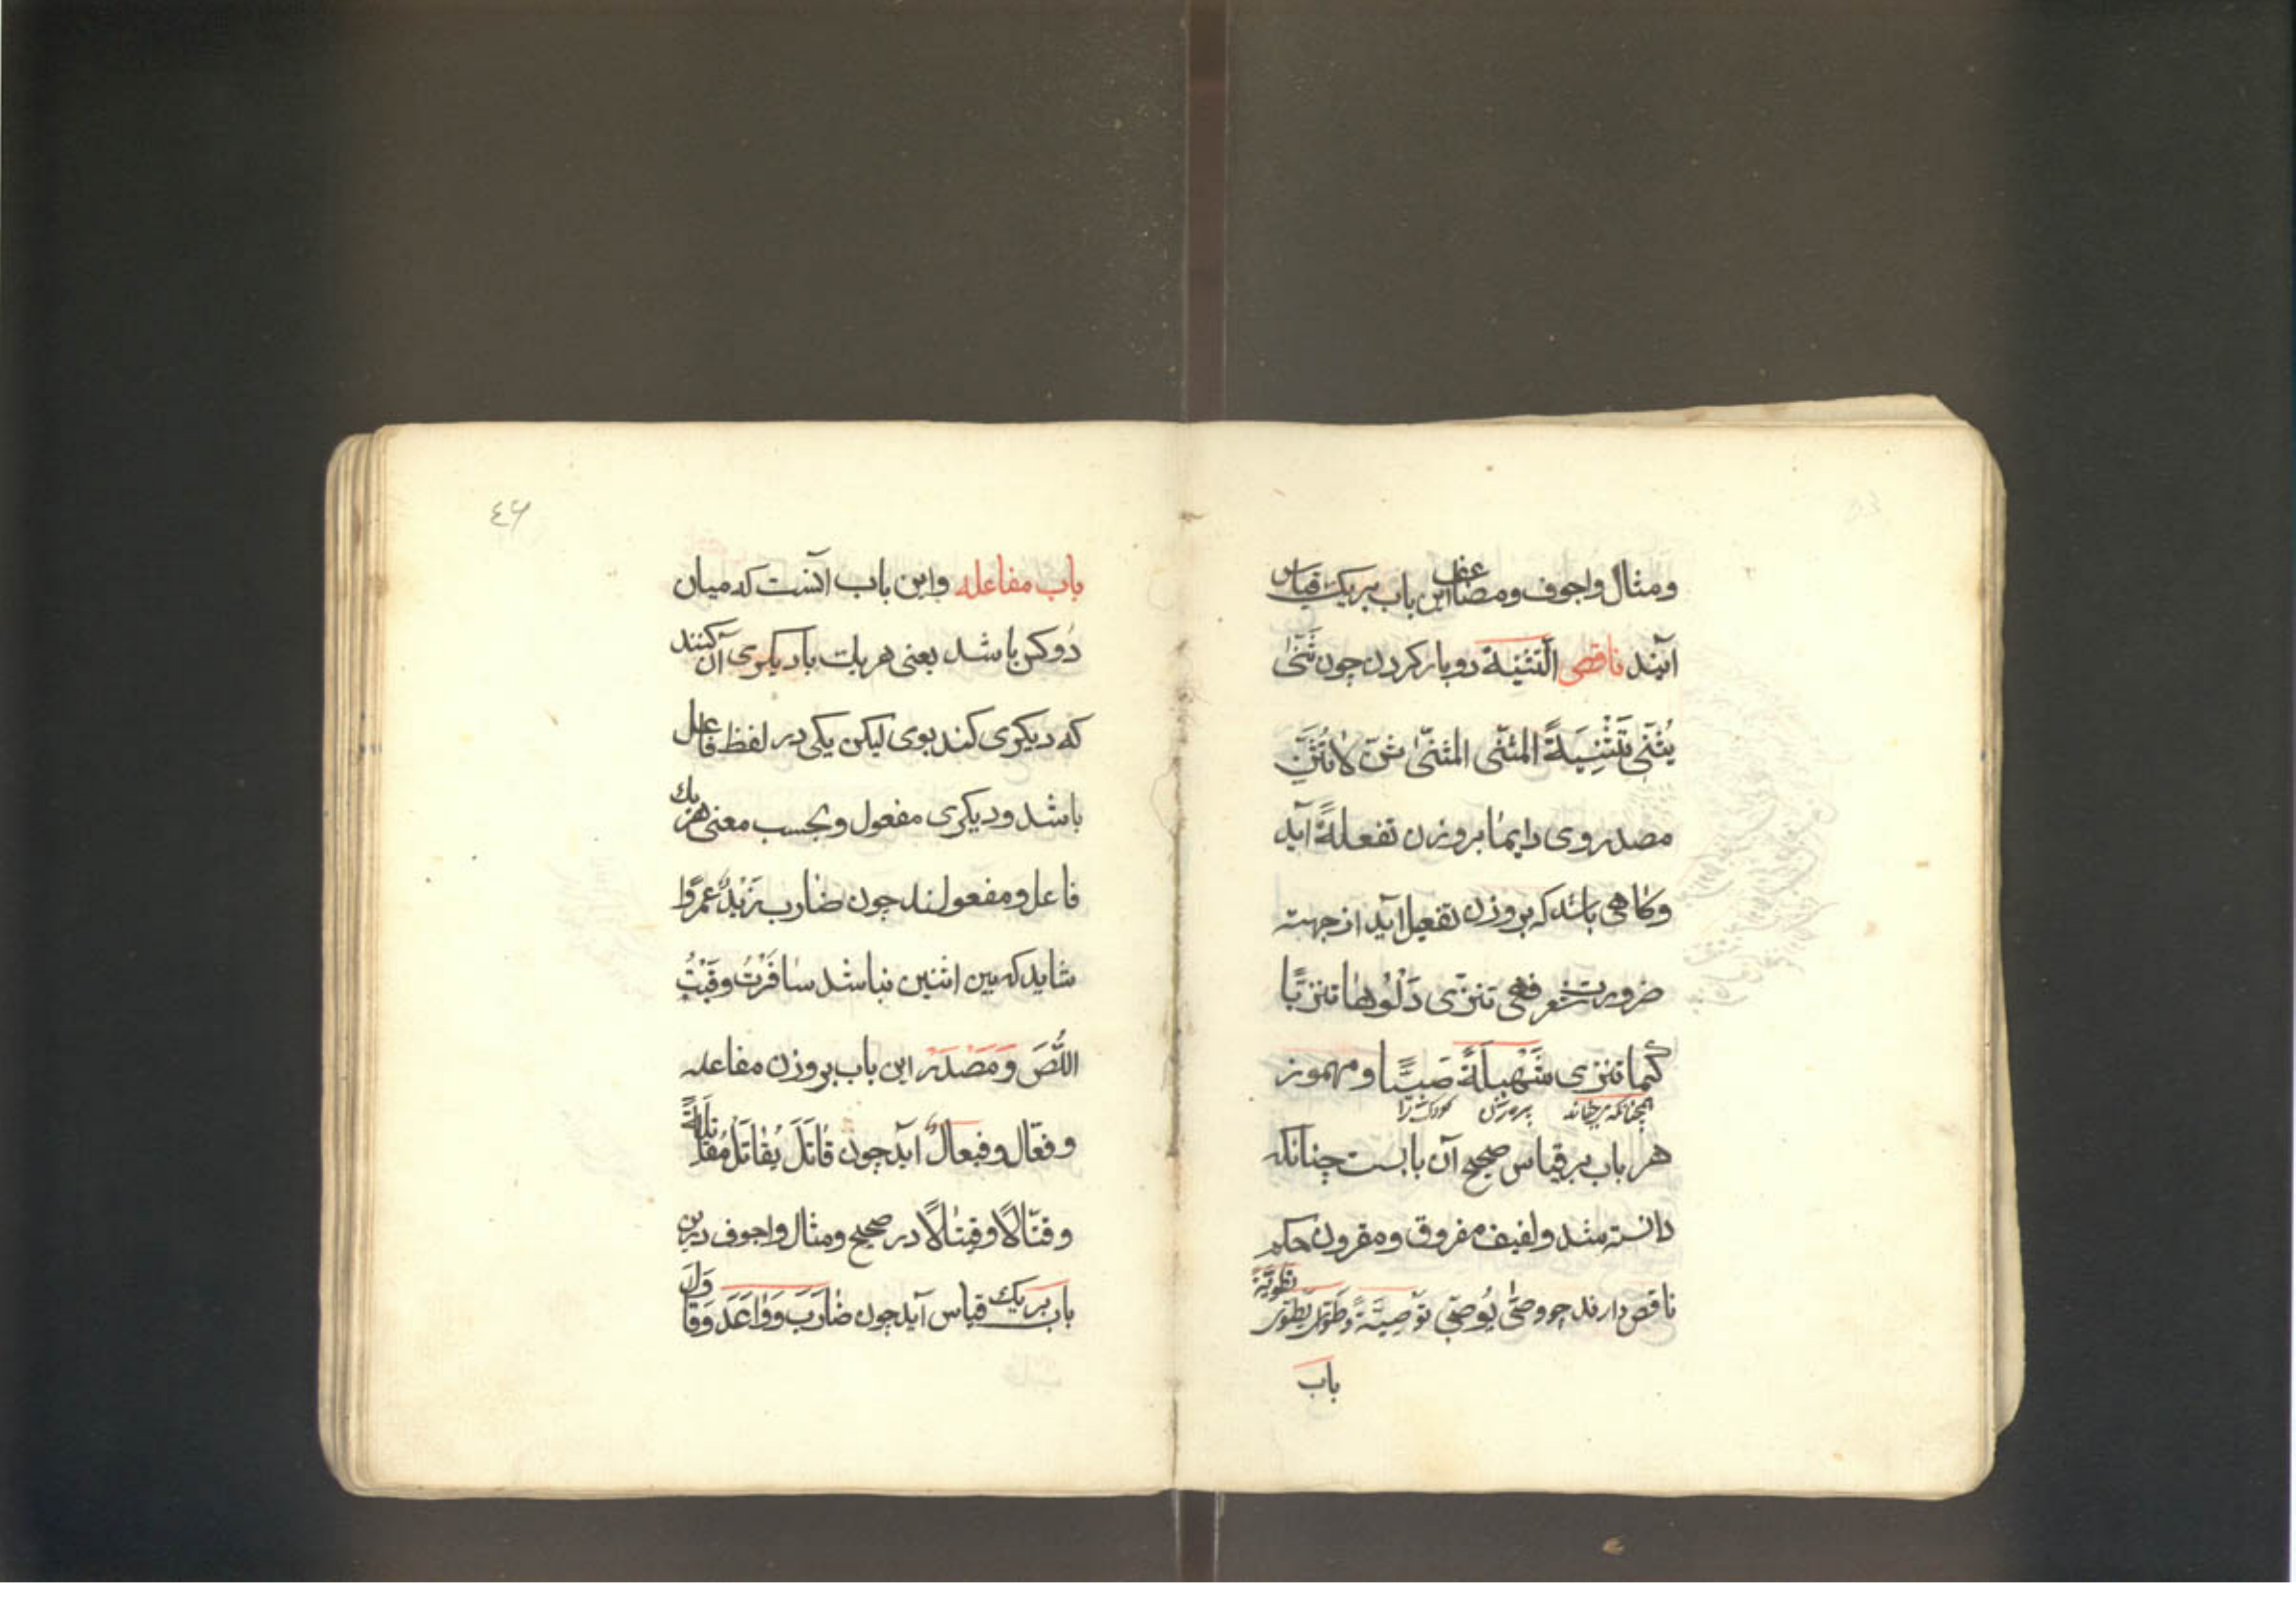 ومثال واجوف ومضاعف این باب بریک قیاس
آیند ناقص التثنیة دوبار کردن چون ثَنّیٰ
یُثَنّی تَثْنِیَةً المثنّی المثنّیٰ ثنّ لاتُثَنِّ
مصدر وی دایما بروزن تفعلةً آید
وکاهی باشد که بروزن تفعیل آید از جهته
ضرورت شعر فهی تنزّی دَلْوُهٰا تنزیًّا
کما تنزی شَهْلَةً صَبیًّا ومهموز
همچنانکه برجهاند پیرهزن کودک را
هر باب بر قیاس صحیح آن بابست چنانکه
دانسته شد ولفیف مفروق ومقرون حکم
ناقص دارند چو وصّیٰ یُوصّی توصِیَةً وطوّی یطوّی تطویةً
باب
٤۶
باب مفاعله واین باب آنست که میان
دوکس باشد یعنی هر یک با دیکری آن کنند
که دیکری کند بوی لیکن یکی در لفظ فاعل
باشد ودیکری مفعول وبحسب معنی هر یک
فاعل ومفعولند چون ضارب زَیْدٌ عمرًوا
شاید که بین اثنین نباشد سافَرْتُ وعٰاقَبْتُ
اللُّصَ وَمَصْدَر این باب بروزن مفاعله
وفعّال وفیعالٌ آید چون قٰاتَلَ یُقٰاتِلُ مُقٰاتَلَةً
وقتّالًا وقِیتٰالًا در صحیح ومثال واجوف درین
باب بریک قیاس آید چون ضٰارَبَ وَوٰاعَدَ وَقٰاوَلَ